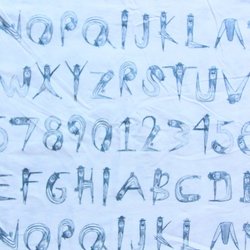 NOPQIJKLM
WXYZRSTUV
5678901234 56
EFGHABCDI
NOPQIJKLM